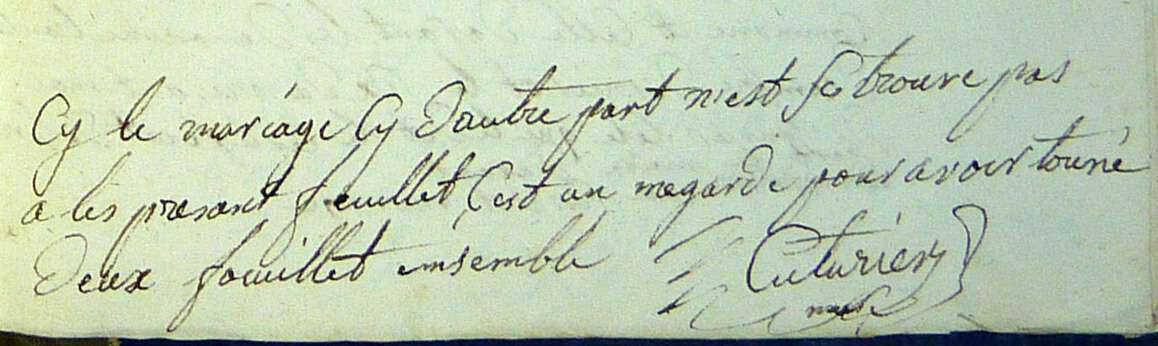 Cy le mariage Cy d'autre part n'est se trouve pas
a les presant feuillet, C'est un megarde pour avoir tourné
deux fouillet ensemble Cuturier